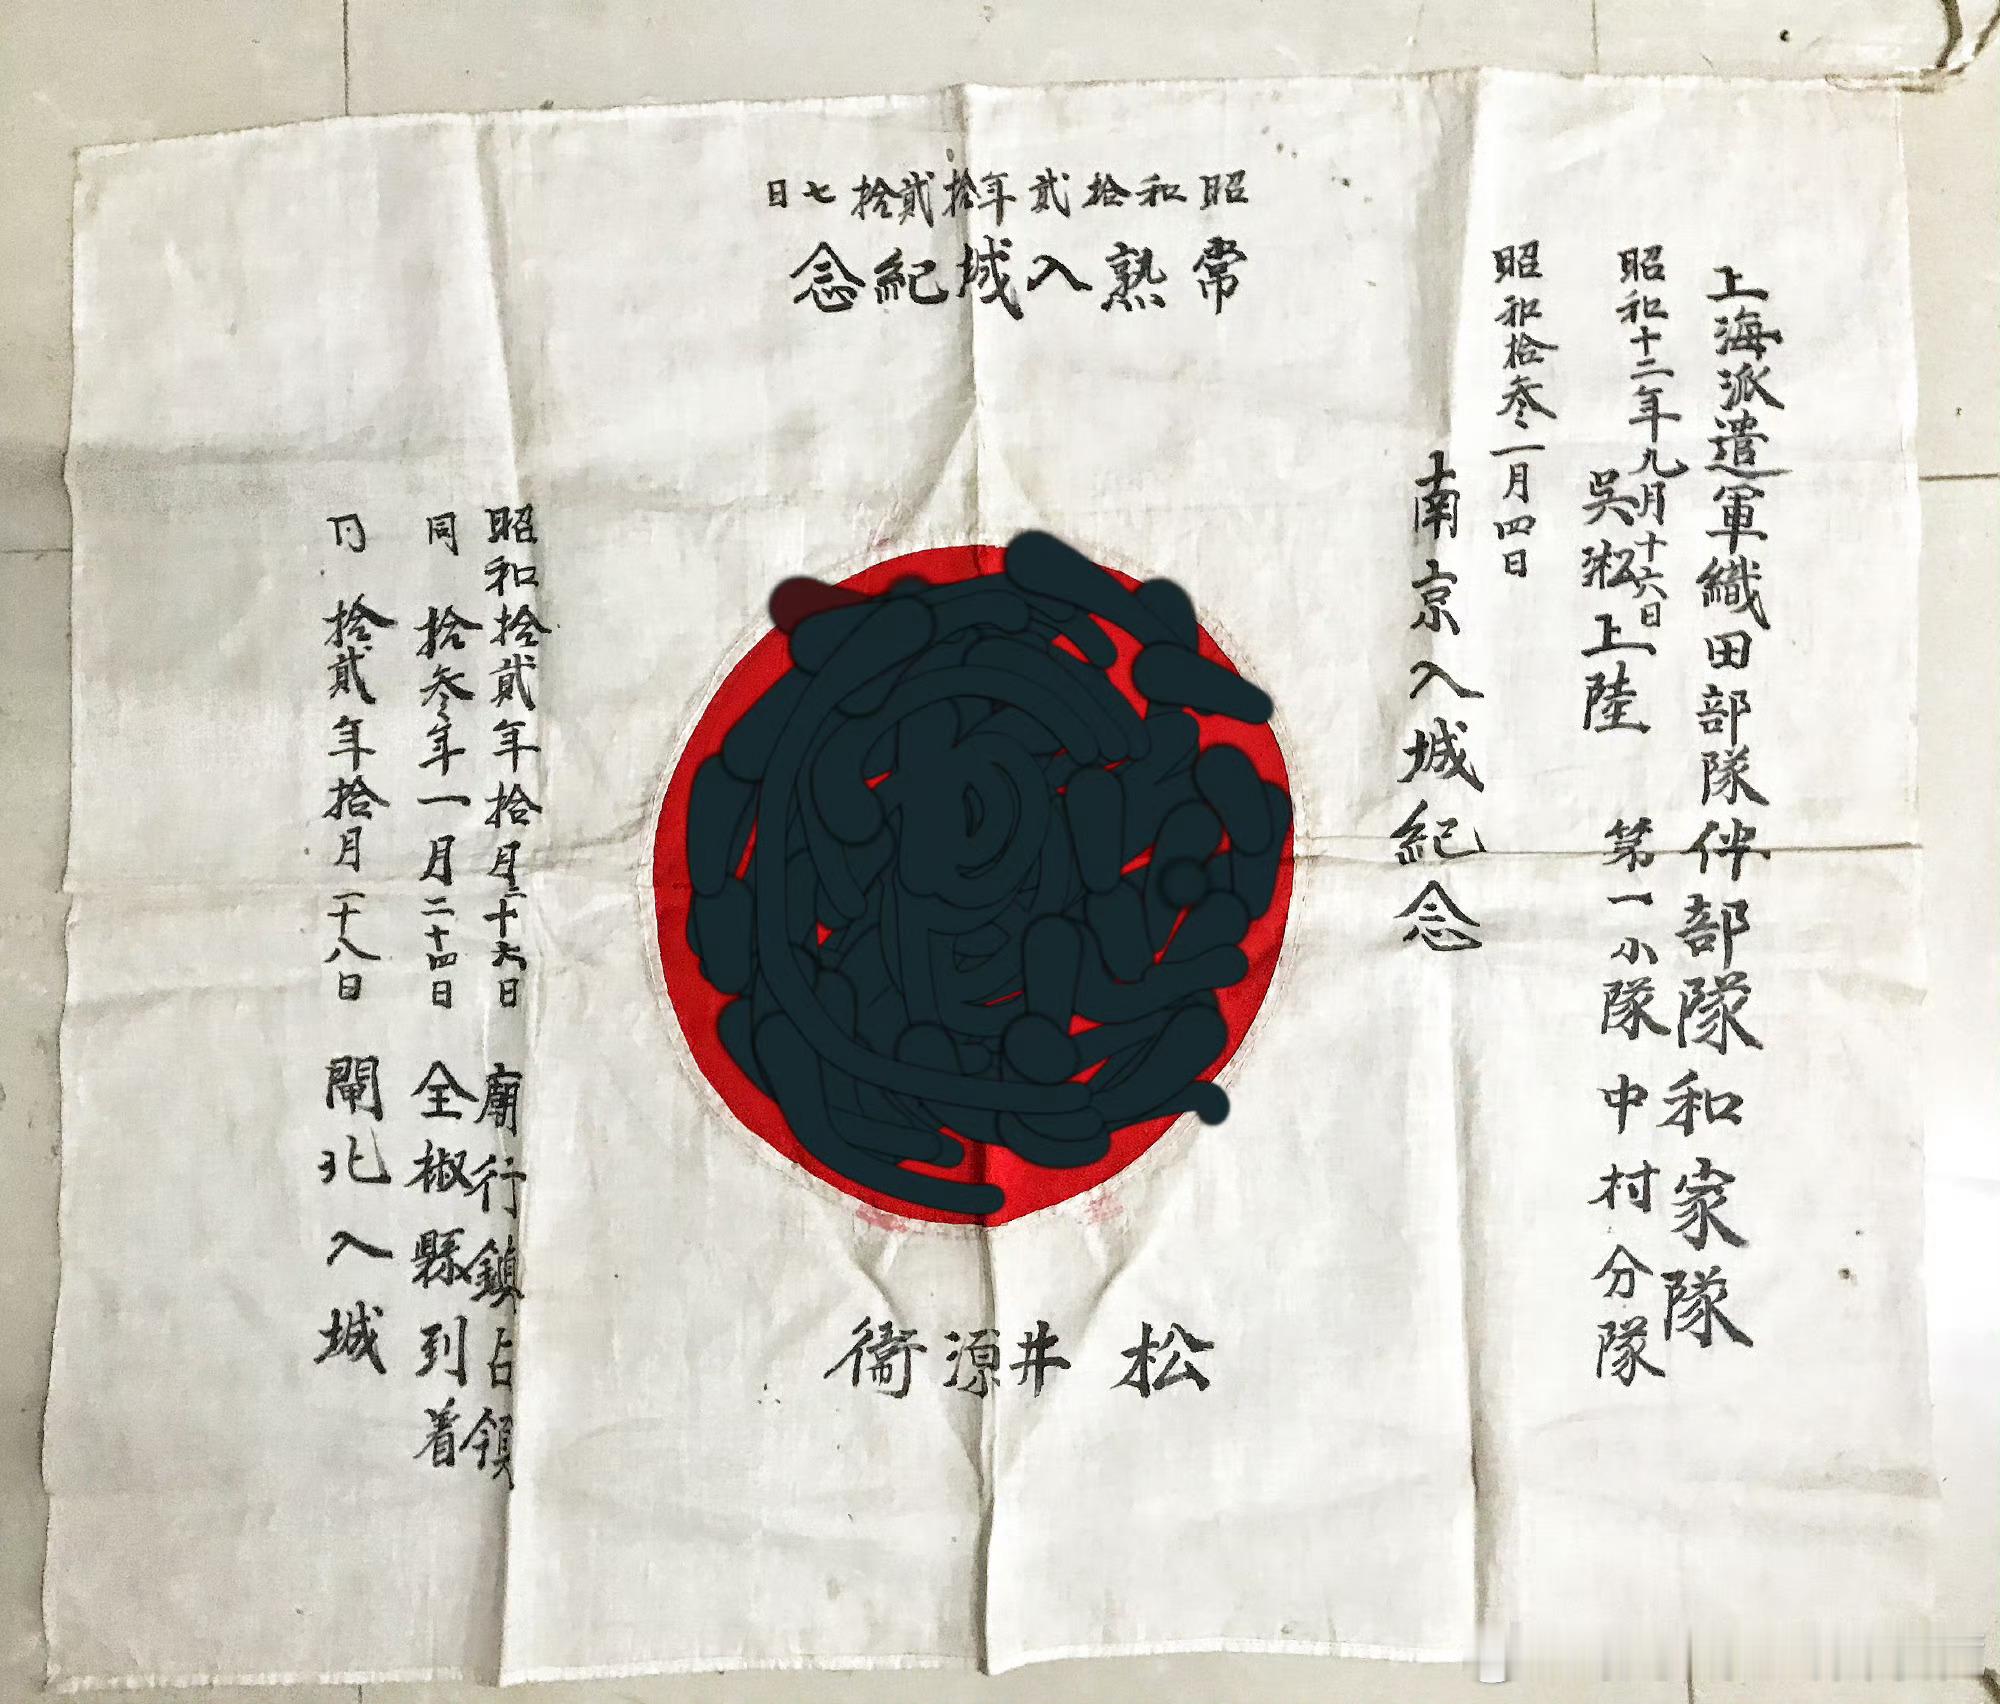 上海派遣軍織田部隊伴部隊和家隊
昭和十二年九月十六日
吳淞上陸 第一小隊中村分隊
昭和拾叄一月四日
南京入城紀念
昭和拾貳年拾貳拾七日
常熟入城紀念
松井源衞
昭和拾貳年拾月二十六日 廟行鎮占領
同 拾叄年一月二十四日 全椒縣到着
同 拾貳年拾月二十八日 閘北入城